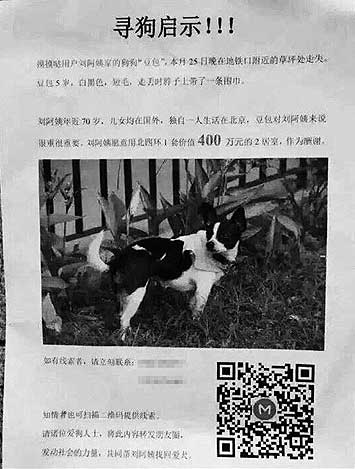 寻狗启示!!!
摸摸哒用户刘阿姨家的狗狗“豆包”,本月25日晚在地铁口附近的草坪处走失。
豆包5岁,白黑色,短毛,走丢时脖子上带了一条围巾。
刘阿姨年近70岁,儿女均在国外,独自一人生活在北京,豆包对刘阿姨来说
很重很重要。刘阿姨愿意用北四环1套价值400万元的2居室,作为酬谢。
如有线索者,请立刻联系:
知情者也可扫描二维码提供线索。
请诸位爱狗人士,将此内容转发朋友圈,
发动社会的力量,共同帮刘阿姨找回爱犬。
M